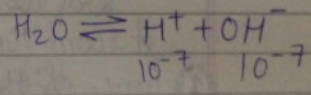 H₂O ⇌ H⁺ + OH⁻
10⁻⁷ 10⁻⁷